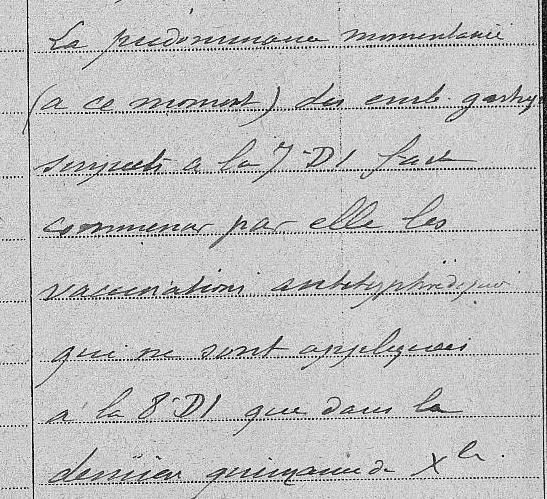 La prédominance momentanée
(à ce moment) des emb gastriq
suspects à la 7e DI fait
commencer par elle les
vaccinations antityphoïdiques
qui ne sont appliquées
à la 8e DI que dans la
dernière quinzaine de Xbre.